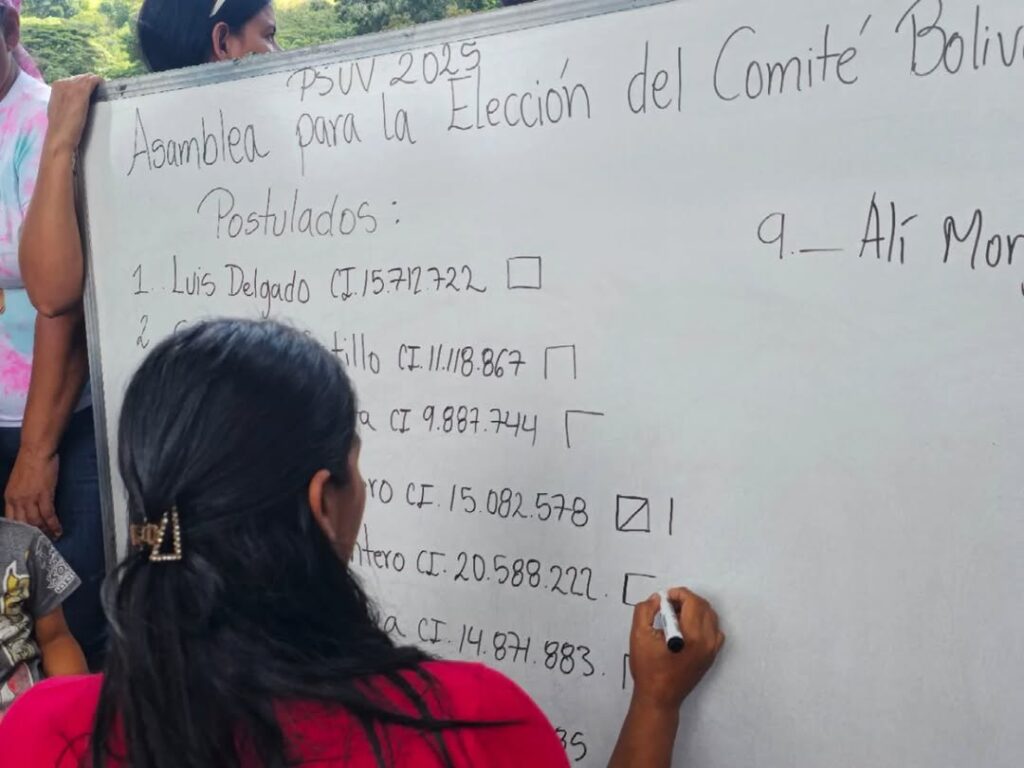 PSUV 2025
Asamblea para la Elección del Comité Boliv
Postulados:
1. Luis Delgado CI.15.712.722
2
tillo CI.11.118.867
a CI 9.887.744
ro CI.15.082.578
ntero CI.20.588.222.
a CI.14.871.883.
85
9.— Alí Mor